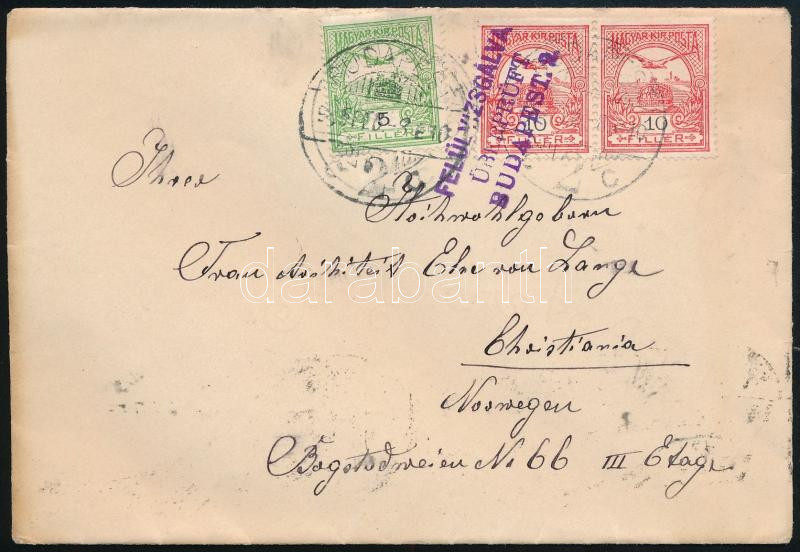 MAGYAR KIR. POSTA
5
FILLER
MAGYAR KIR. POSTA
10
FILLER
MAGYAR KIR. POSTA
10
FILLER
FELÜLVIZSGÁLVA
ÜBERPRÜFT
BUDAPEST. 2.
BUDAPEST
2 C
2 C
Ihrer
Hochwohlgeborn
Frau Architeit Else von Lange
Christiania
Norwegen
No 66 III Etage
darabanth